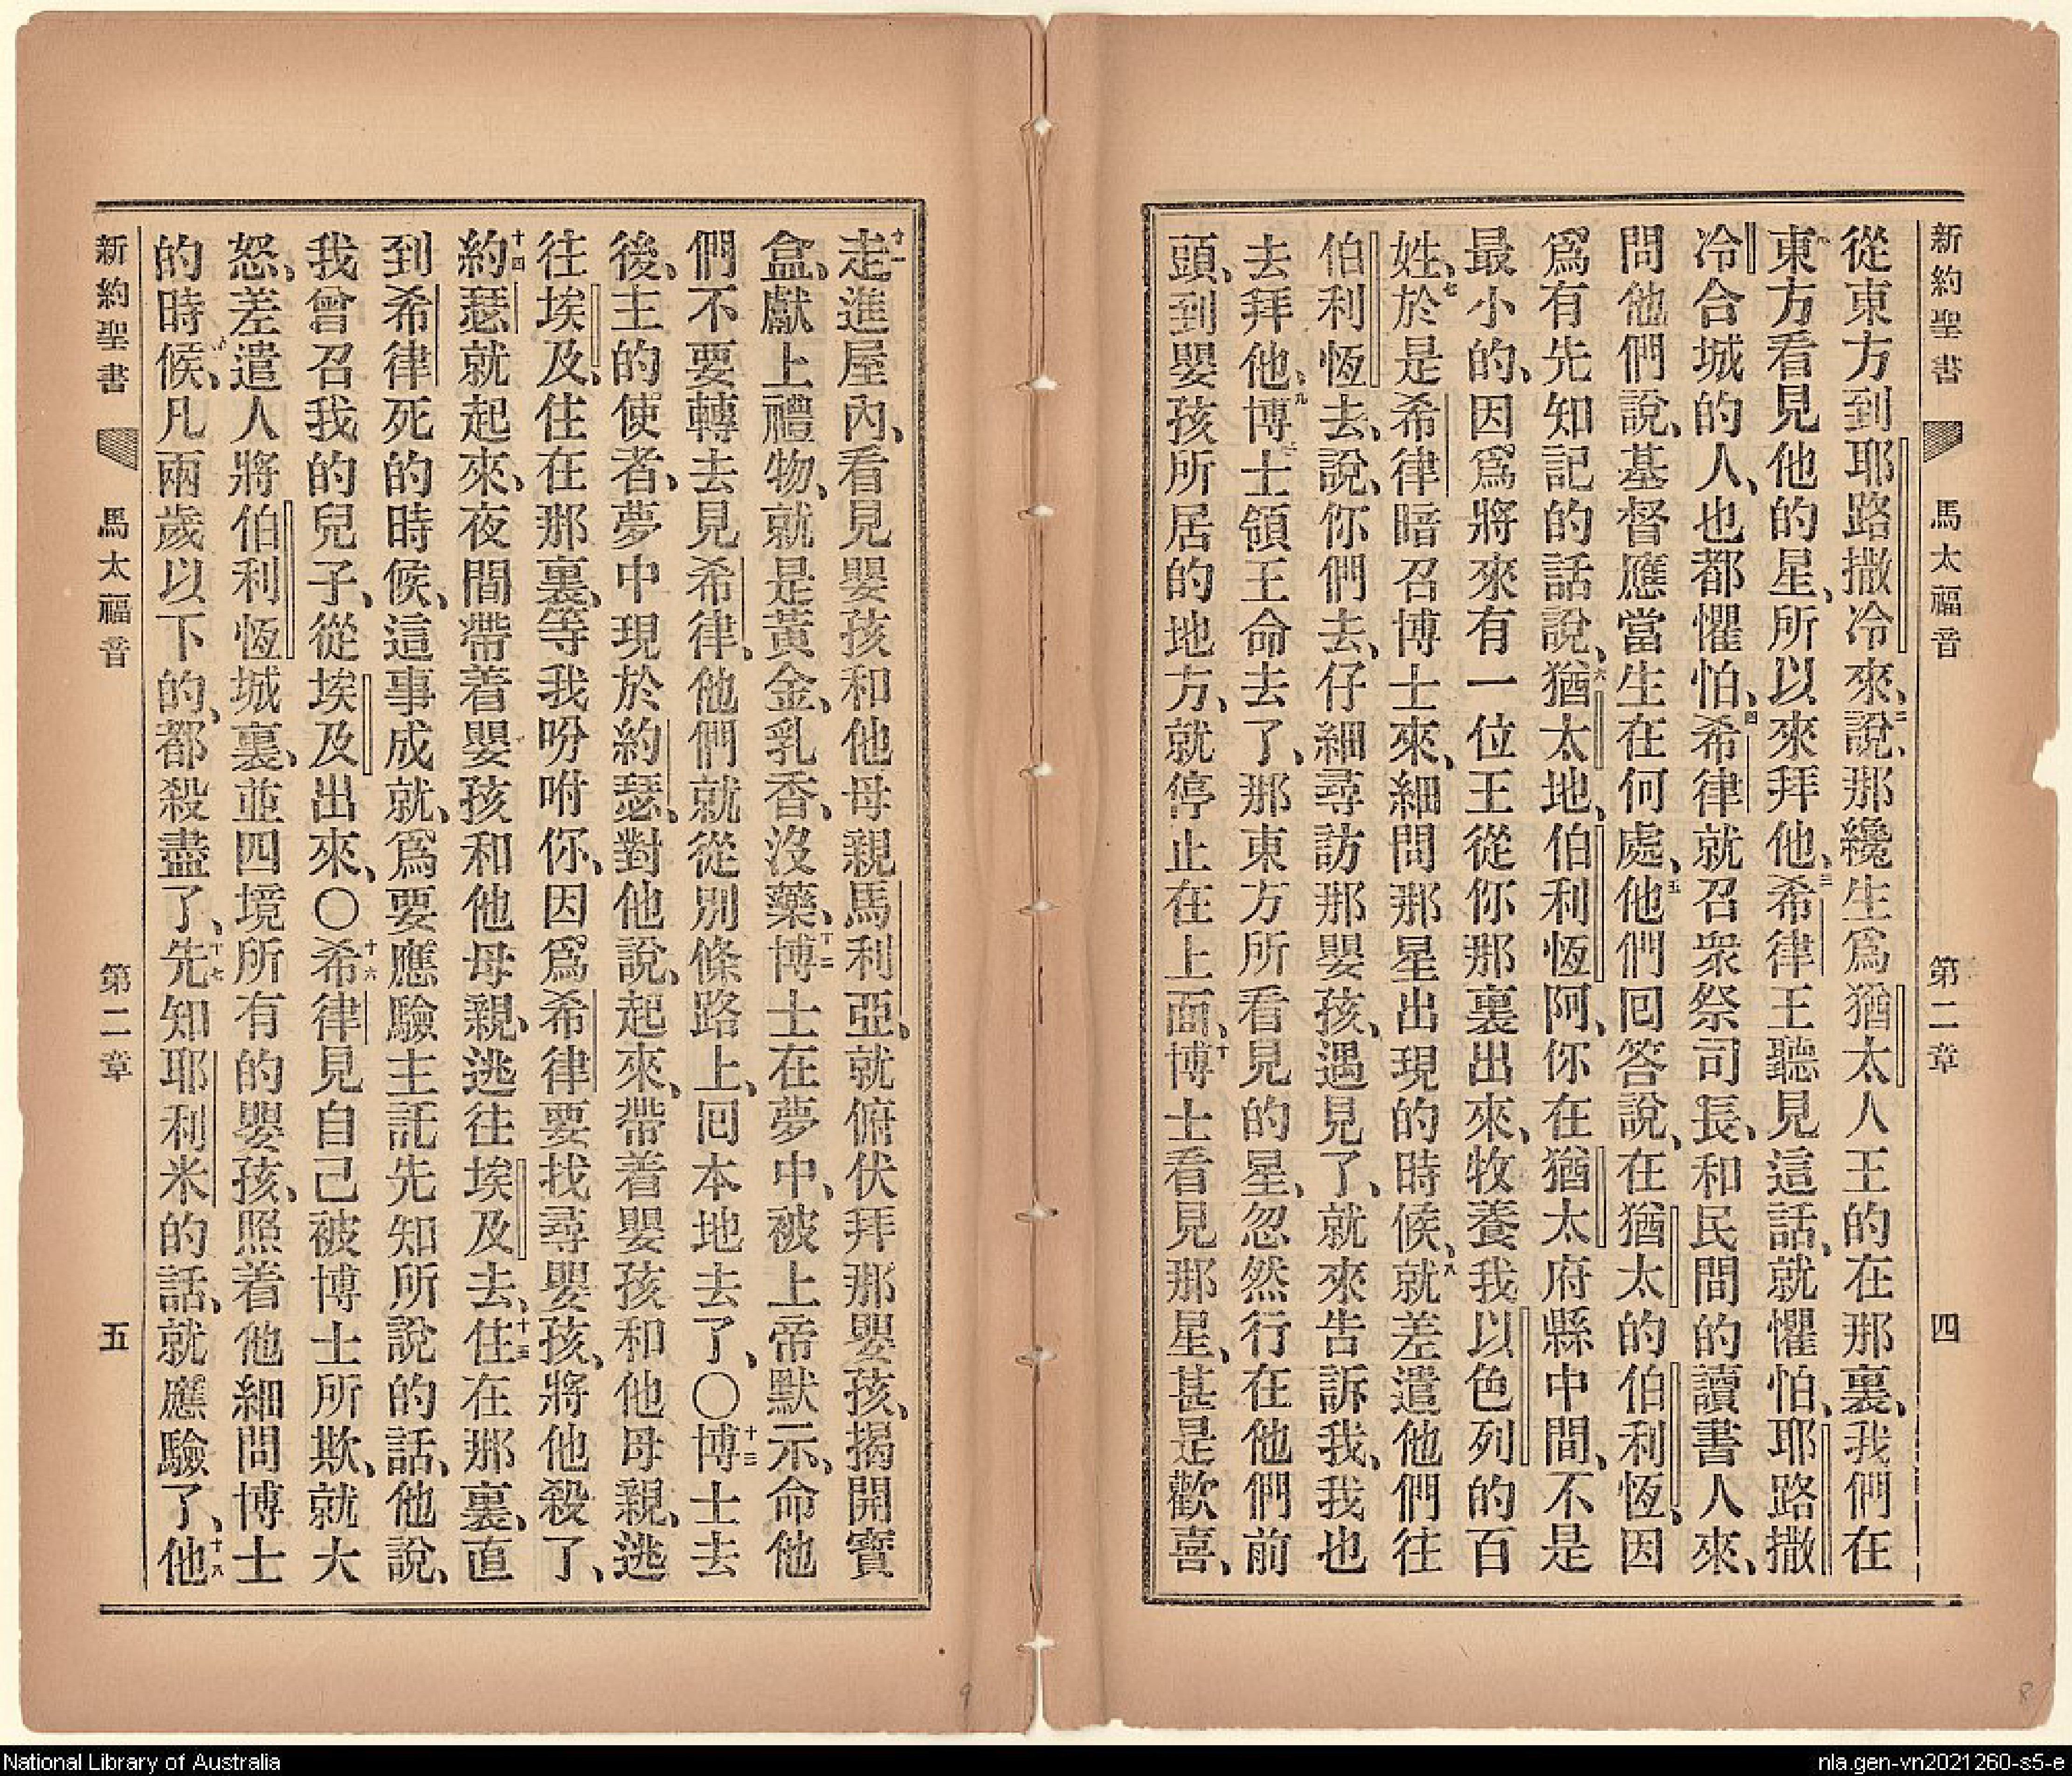 新約聖書 馬太福音 第二章 四
從東方到耶路撒冷來、二說、那纔生爲猶太人王的在那裏、我們在
東方看見他的星、所以來拜他、三希律王聽見這話、就懼怕、耶路撒
冷合城的人、也都懼怕、四希律就召衆祭司長、和民間的讀書人來、
問他們說、基督應當生在何處、五他們回答說、在猶太的伯利恆、因
爲有先知記的話說、六猶太地、伯利恆阿、你在猶太府縣中間、不是
最小的、因爲將來有一位王從你那裏出來、牧養我以色列的百
姓、七於是希律暗召博士來、細問那星出現的時候、八就差遣他們往
伯利恆去、說、你們去、仔細尋訪那嬰孩、遇見了、就來告訴我、我也
去拜他、九博士領王命去了、那東方所看見的星、忽然行在他們前
頭、到嬰孩所居的地方、就停止在上面、十博士看見那星、甚是歡喜、
十一走進屋內、看見嬰孩和他母親馬利亞、就俯伏拜那嬰孩、揭開寶
盒、獻上禮物、就是黃金、乳香、沒藥、十二博士在夢中、被上帝默示、命他
們不要轉去見希律、他們就從別條路上、回本地去了、〇十三博士去
後、主的使者、夢中現於約瑟、對他說、起來、帶着嬰孩和他母親、逃
往埃及、住在那裏、等我吩咐你、因爲希律要找尋嬰孩、將他殺了、
十四約瑟就起來、夜間帶着嬰孩和他母親、逃往埃及去、十五住在那裏、直
到希律死的時候、這事成就、爲要應驗主託先知所說的話、他說、
我曾召我的兒子、從埃及出來、〇十六希律見自己被博士所欺、就大
怒、差遣人將伯利恆城裏、並四境所有的嬰孩、照着他細問博士
的時候、凡兩歲以下的、都殺盡了、十七先知耶利米的話、就應驗了、十八他
新約聖書 馬太福音 第二章 五
9
8
National Library of Australia
nla.gen-vn2021260-s5-e